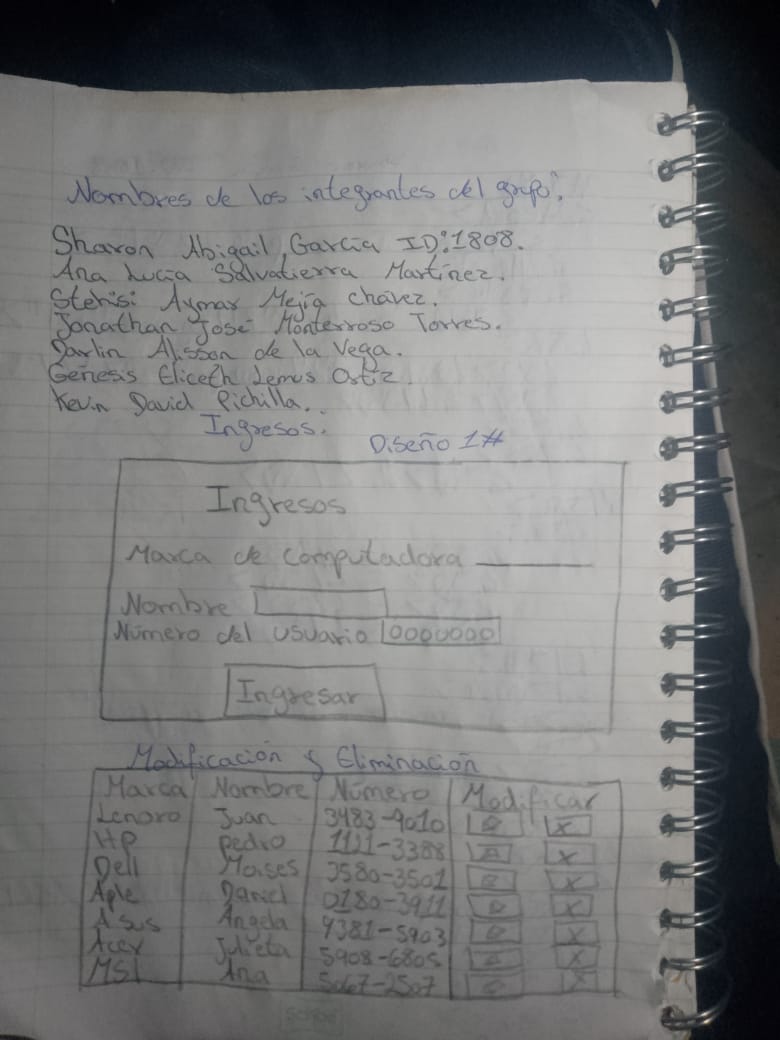 Nombres de los integrantes del grupo".
Sharon Abigail Garcia ID:1808.
Ana Lucía Salvatierra Martínez.
Aymar Mejía Chávez.
Jonathan José Monterroso Torres.
Darlin Alisson de la Vega.
Génesis Eliceth Lemus Ortiz.
Kevin David Pichilla.
Ingresos:
Diseño 1#
Ingresos
Marca de computadora
Nombre
Número del usuario 0000000
Ingresar
Modificación y Eliminación
Marca Nombre Número Modificar
Lenovo Juan 3483-9010 X
HP pedro 1111-3388 X
Dell Moises 3580-3501 X
Aple Daniel 0180-3911 X
A'sus Angela 9381-5903 X
Acer Julieta 5908-6805 X
MSI Ana 5067-2507 X